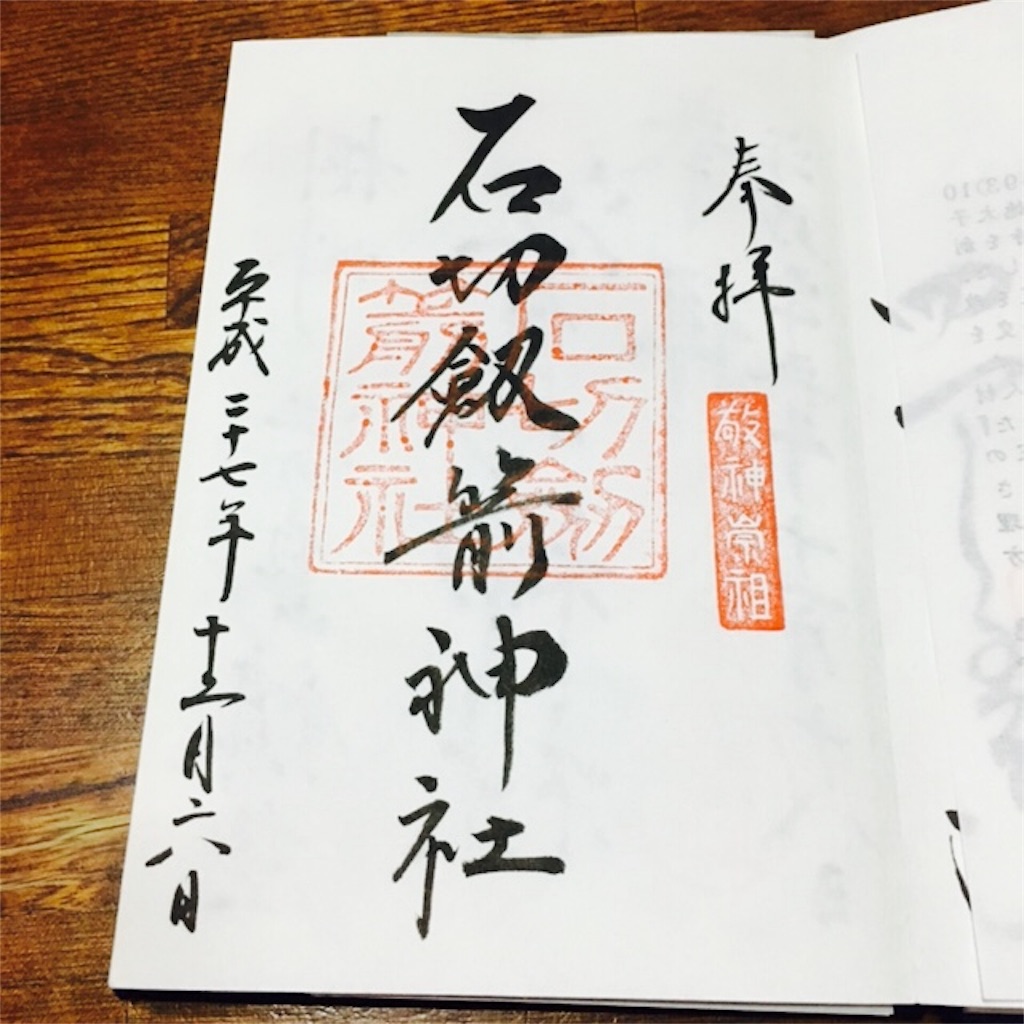 奉拝
敬神崇祖
石切劔箭神社
石切劔箭神社
平成二十七年十二月二八日